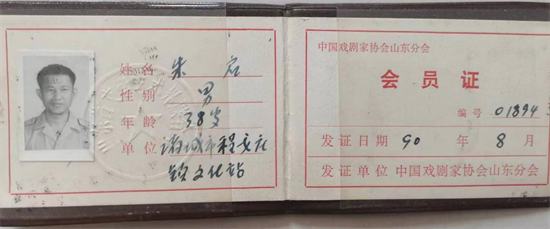 姓名 朱宏
性别 男
年龄 38岁
单位 诸城市程戈庄
镇文化站
中国戏剧家协会山东分会
会员证
编号 01894
发证日期 90 年 8 月
发证单位 中国戏剧家协会山东分会